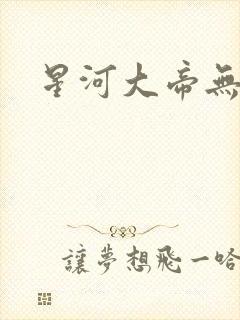 星河大帝無
讓夢想飛一哈